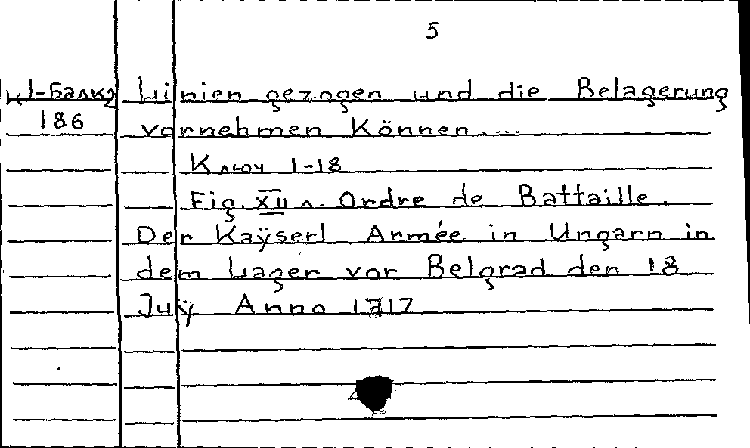 5
кI-Балк2 Linien gezogen und die Belagerung
186 vornehmen Können....
Ключ 1-18
Fig. XII л. Ordre de Battaille.
Der Kaÿserl Armée in Ungarn in
dem Lager vor Belgrad den 18
Julÿ Anno 1717